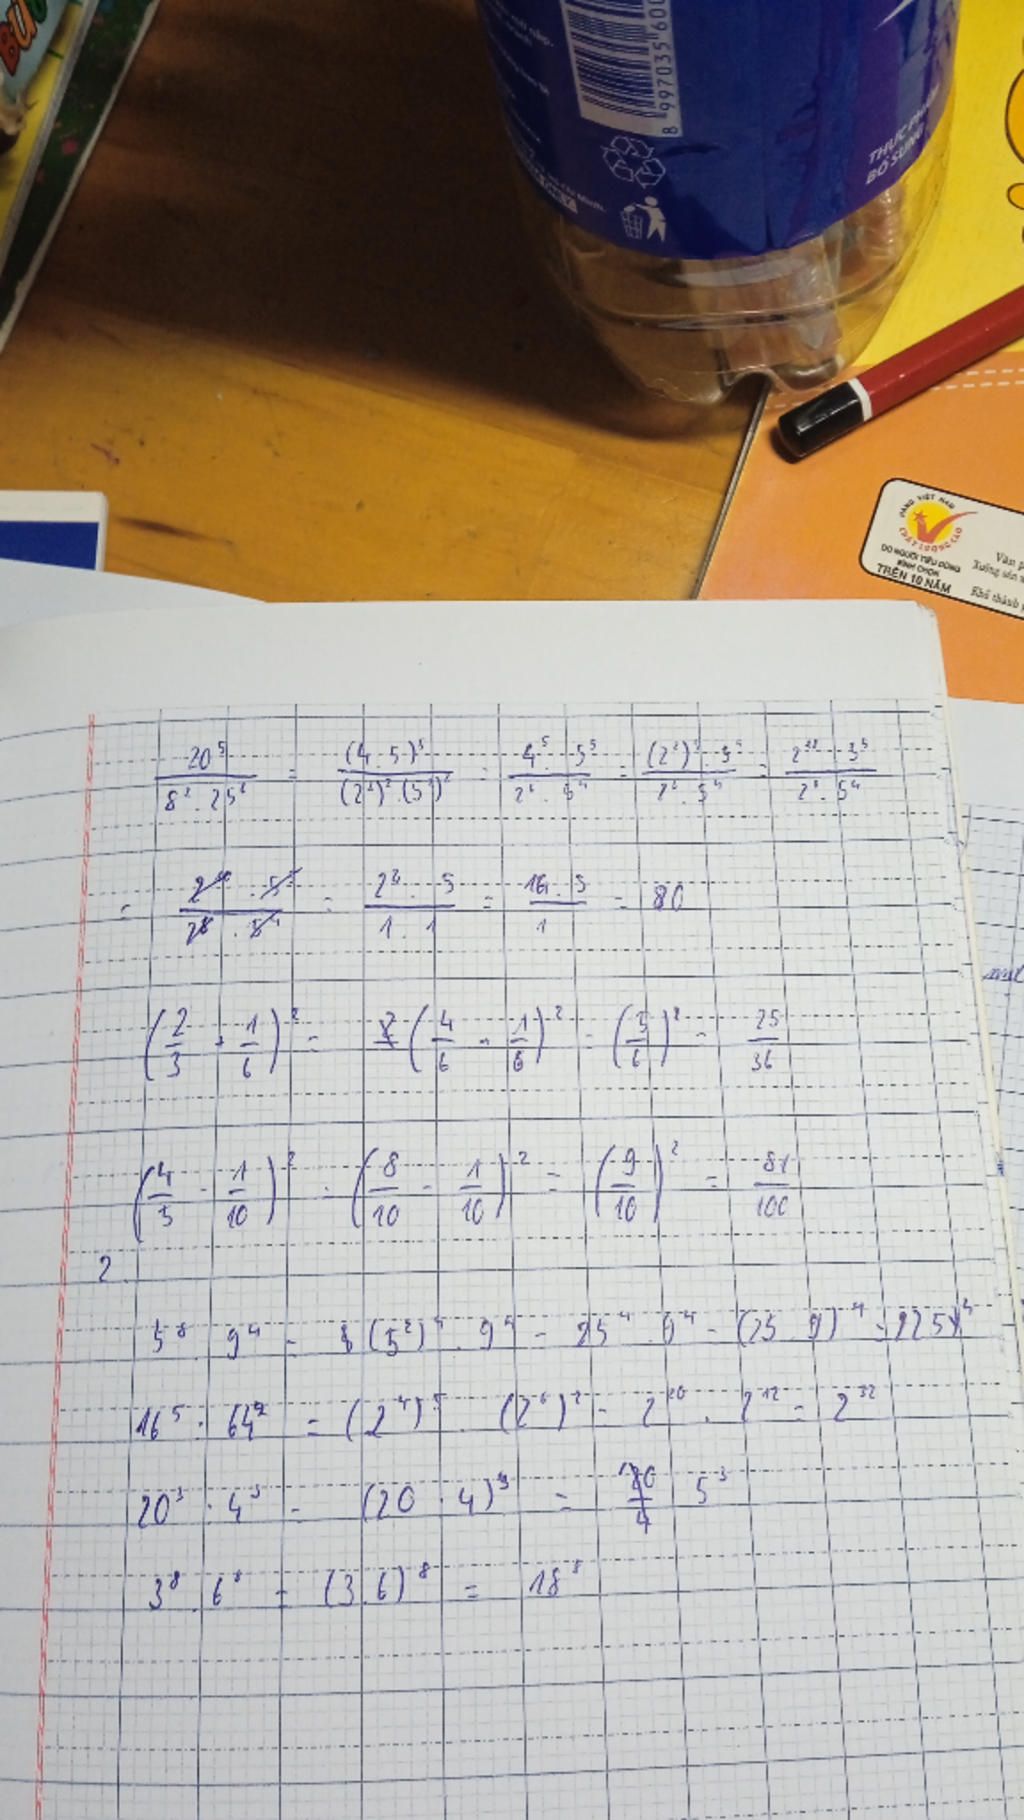 BỨ
8 997035 600
THỰC PH
BỔ SUNG
HÀNG VIỆT NAM
CHẤT LƯỢNG CAO
DO NGƯỜI TIÊU DÙNG
BÌNH CHỌN
TRÊN 10 NĂM
Văn p
Xưởng sản x
Khó thành p
20⁵ / 8² . 25² = (4 . 5)⁵ / (2²)² . (5²)² = 4⁵ . 5⁵ / 2⁶ . 5⁴ = (2²)⁵ . 5⁵ / 2⁶ . 5⁴ = 2¹⁰ . 5⁵ / 2⁶ . 5⁴
= 2⁸ . 5 / 1 . 1 = 16 . 5 / 1 = 80
(2/3 + 1/6)² = (4/6 + 1/6)² = (5/6)² = 25/36
(4/5 - 1/10)² = (8/10 - 1/10)² = (9/10)² = 81/100
2
5⁸ . 9⁴ = (5²)⁴ . 9⁴ = 25⁴ . 9⁴ = (25 . 9)⁴ = 225⁴
16⁵ : 64² = (2⁴)⁵ . (2⁶)² = 2²⁰ . 2¹² = 2³²
20³ : 4³ = (20 : 4)³ = 5³
3⁸ . 6⁸ = (3 . 6)⁸ = 18⁸